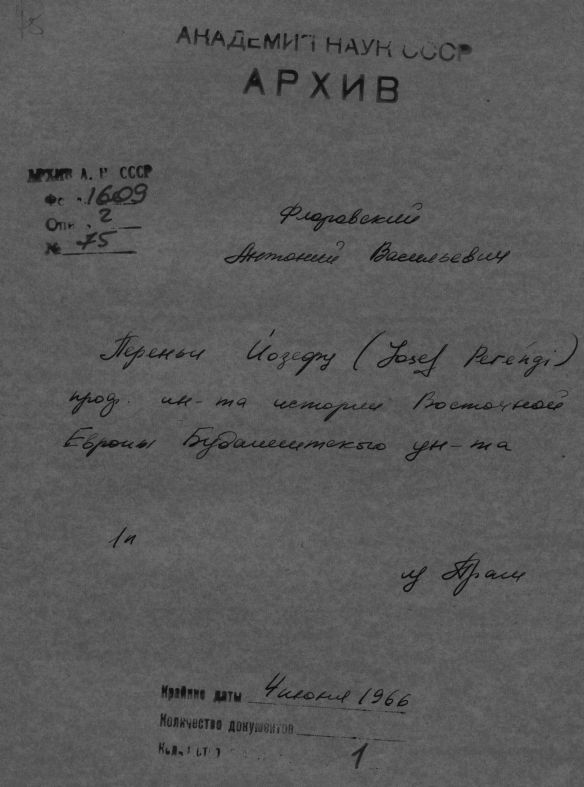 АКАДЕМИЯ НАУК СССР
АРХИВ
АРХИВ А. Н. СССР
Фо 1609
Оп. 2
№ 75
Флоровский
Антоний Васильевич
Переньи Йозефу (Josef Perényi)
проф. ин-та истории Восточной
Европы Будапештского ун-та
1п
из Праги
Крайние даты 4 июня 1966
Количество документов
1